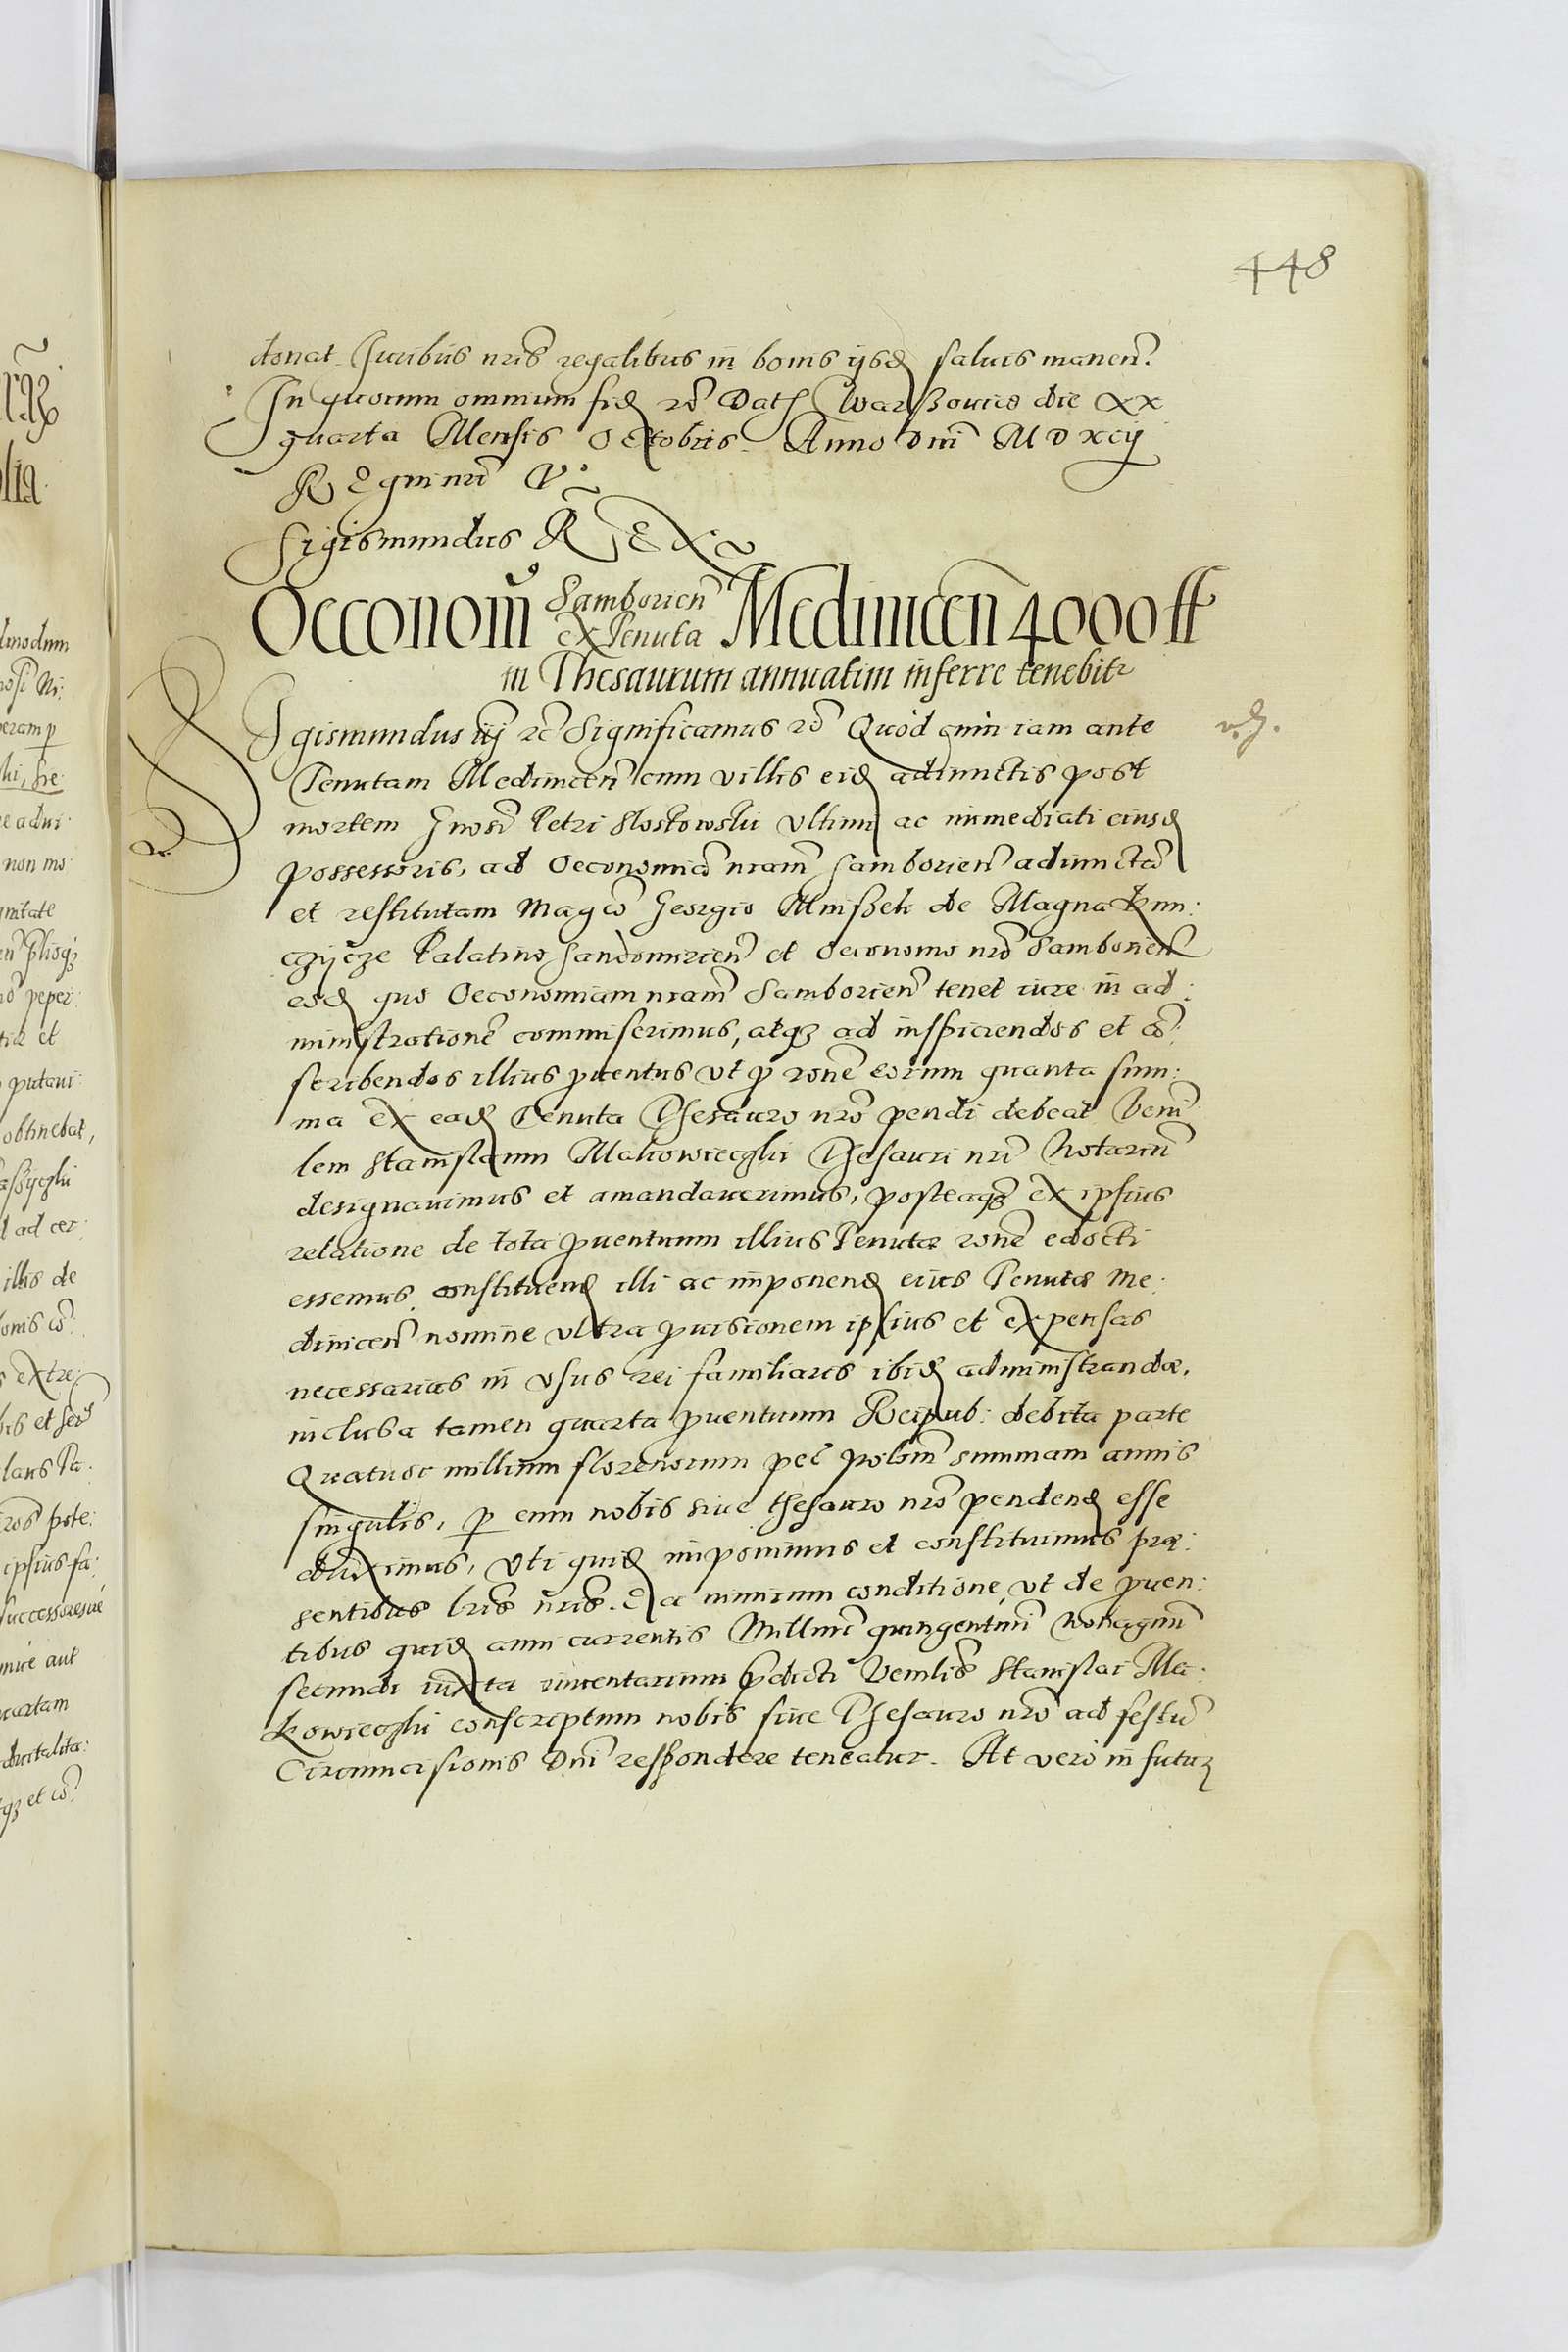 448
donat. Juribus nris regalibus in bonis ijsd salvis manen.
In quorum omnium fid rc Dat Warssoviae die XX
quarta Mensis Octobris. Anno Dni MDXCij
Regni nri V.
Sigismundus REX
Oeconom Samborien ex Tenuta Medinicen 4000 ff
in Thesaurum annuatim inferre tenebitr
Sigismundus iij rc Significamus rc Quod cum iam ante
Tenutam Medinicen cum villis eid adiunctis post
mortem Gnosi Petri Slostowski ultimi ac immediati eiusd
possessoris, ad Oeconomia nram Samborien adiuncta
et restitutam Magco Georgio Mnissek de Magna Kun:
czijcze Palatino Sandomirien et Oeconomo nro Samborien
eod quo Oeconomiam nram Samborien tenet iure in ad:
ministratione commiserimus, atqz ad inspiciendos et co
scribendos illius pventus ut p rone eorum quanta sum:
ma ex ead Tenuta Thesauro nro pendi debeat Veni
lem Stanislaum Makowieczki Thesauri nri Notariu
designavimus et amandaverimus, posteaqz ex ipsius
relatione de tota pventuum illius Tenutae rone edocti
essemus constituend illi ac imponend eius Tenutae Me:
dinicen nomine ultra pvisionem ipsius et expensas
necessarias in usus rei familiaris ibid administrandae,
inclusa tamen quarta pventuum Reipub: debita parte
Quatuor millium florenorum pec polon summam annis
singulis, p eum nobis sive thesauro nro pendend esse
duximus, Uti quid imponimus et constituimus prae:
sentibus lris nris. Ea nimirum conditione, ut de pven:
tibus quid anni currentis Millmi quingentmi Nonagmi
secundi iuxta inventarium pdicti Venlis Stanislai Ma:
kowieczki conscriptum nobis sive Thesauro nro ad festu
Circumcisionis Dni respondere teneatur. At vero in futur